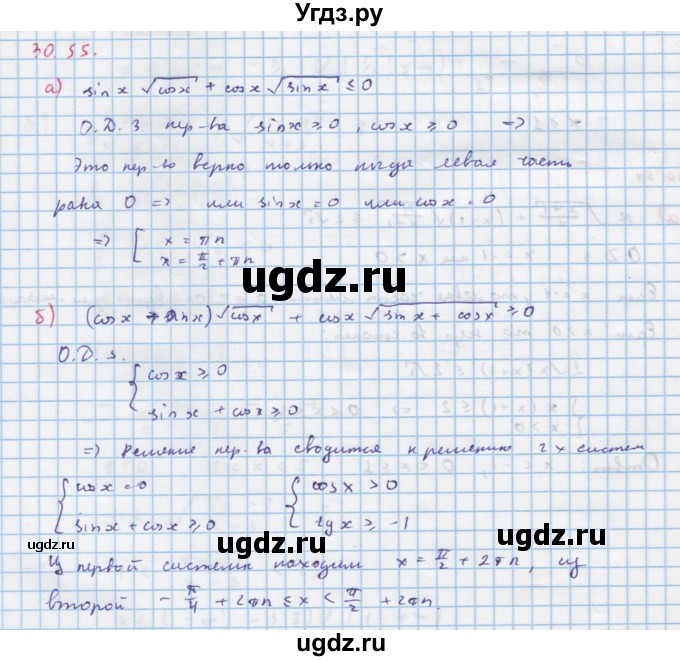 Угдз.ру
30.55.
а) sin x √cos x + cos x √sin x ≤ 0
О.Д.З. нер-ва sin x ≥ 0, cos x ≥ 0 =>
Это нер-во верно только когда левая часть
рана 0 => или sin x = 0 или cos x = 0
=> [ x = πn
x = π/2 + πn
ugdz.ru
б) (cos x + sin x) √cos x + cos x √sin x + cos x ≥ 0
О.Д.З.
{ cos x ≥ 0
sin x + cos x ≥ 0
ugdz.ru
=> Решение нер-ва сводится к решению 2х систем
{ cos x = 0 { cos x > 0
sin x + cos x ≥ 0 tg x ≥ -1
ugdz.ru ugdz.ru
Из первой системы находим x = π/2 + 2πn, из
второй - π/4 + 2πn ≤ x < π/2 + 2πn.
ugdz.ru